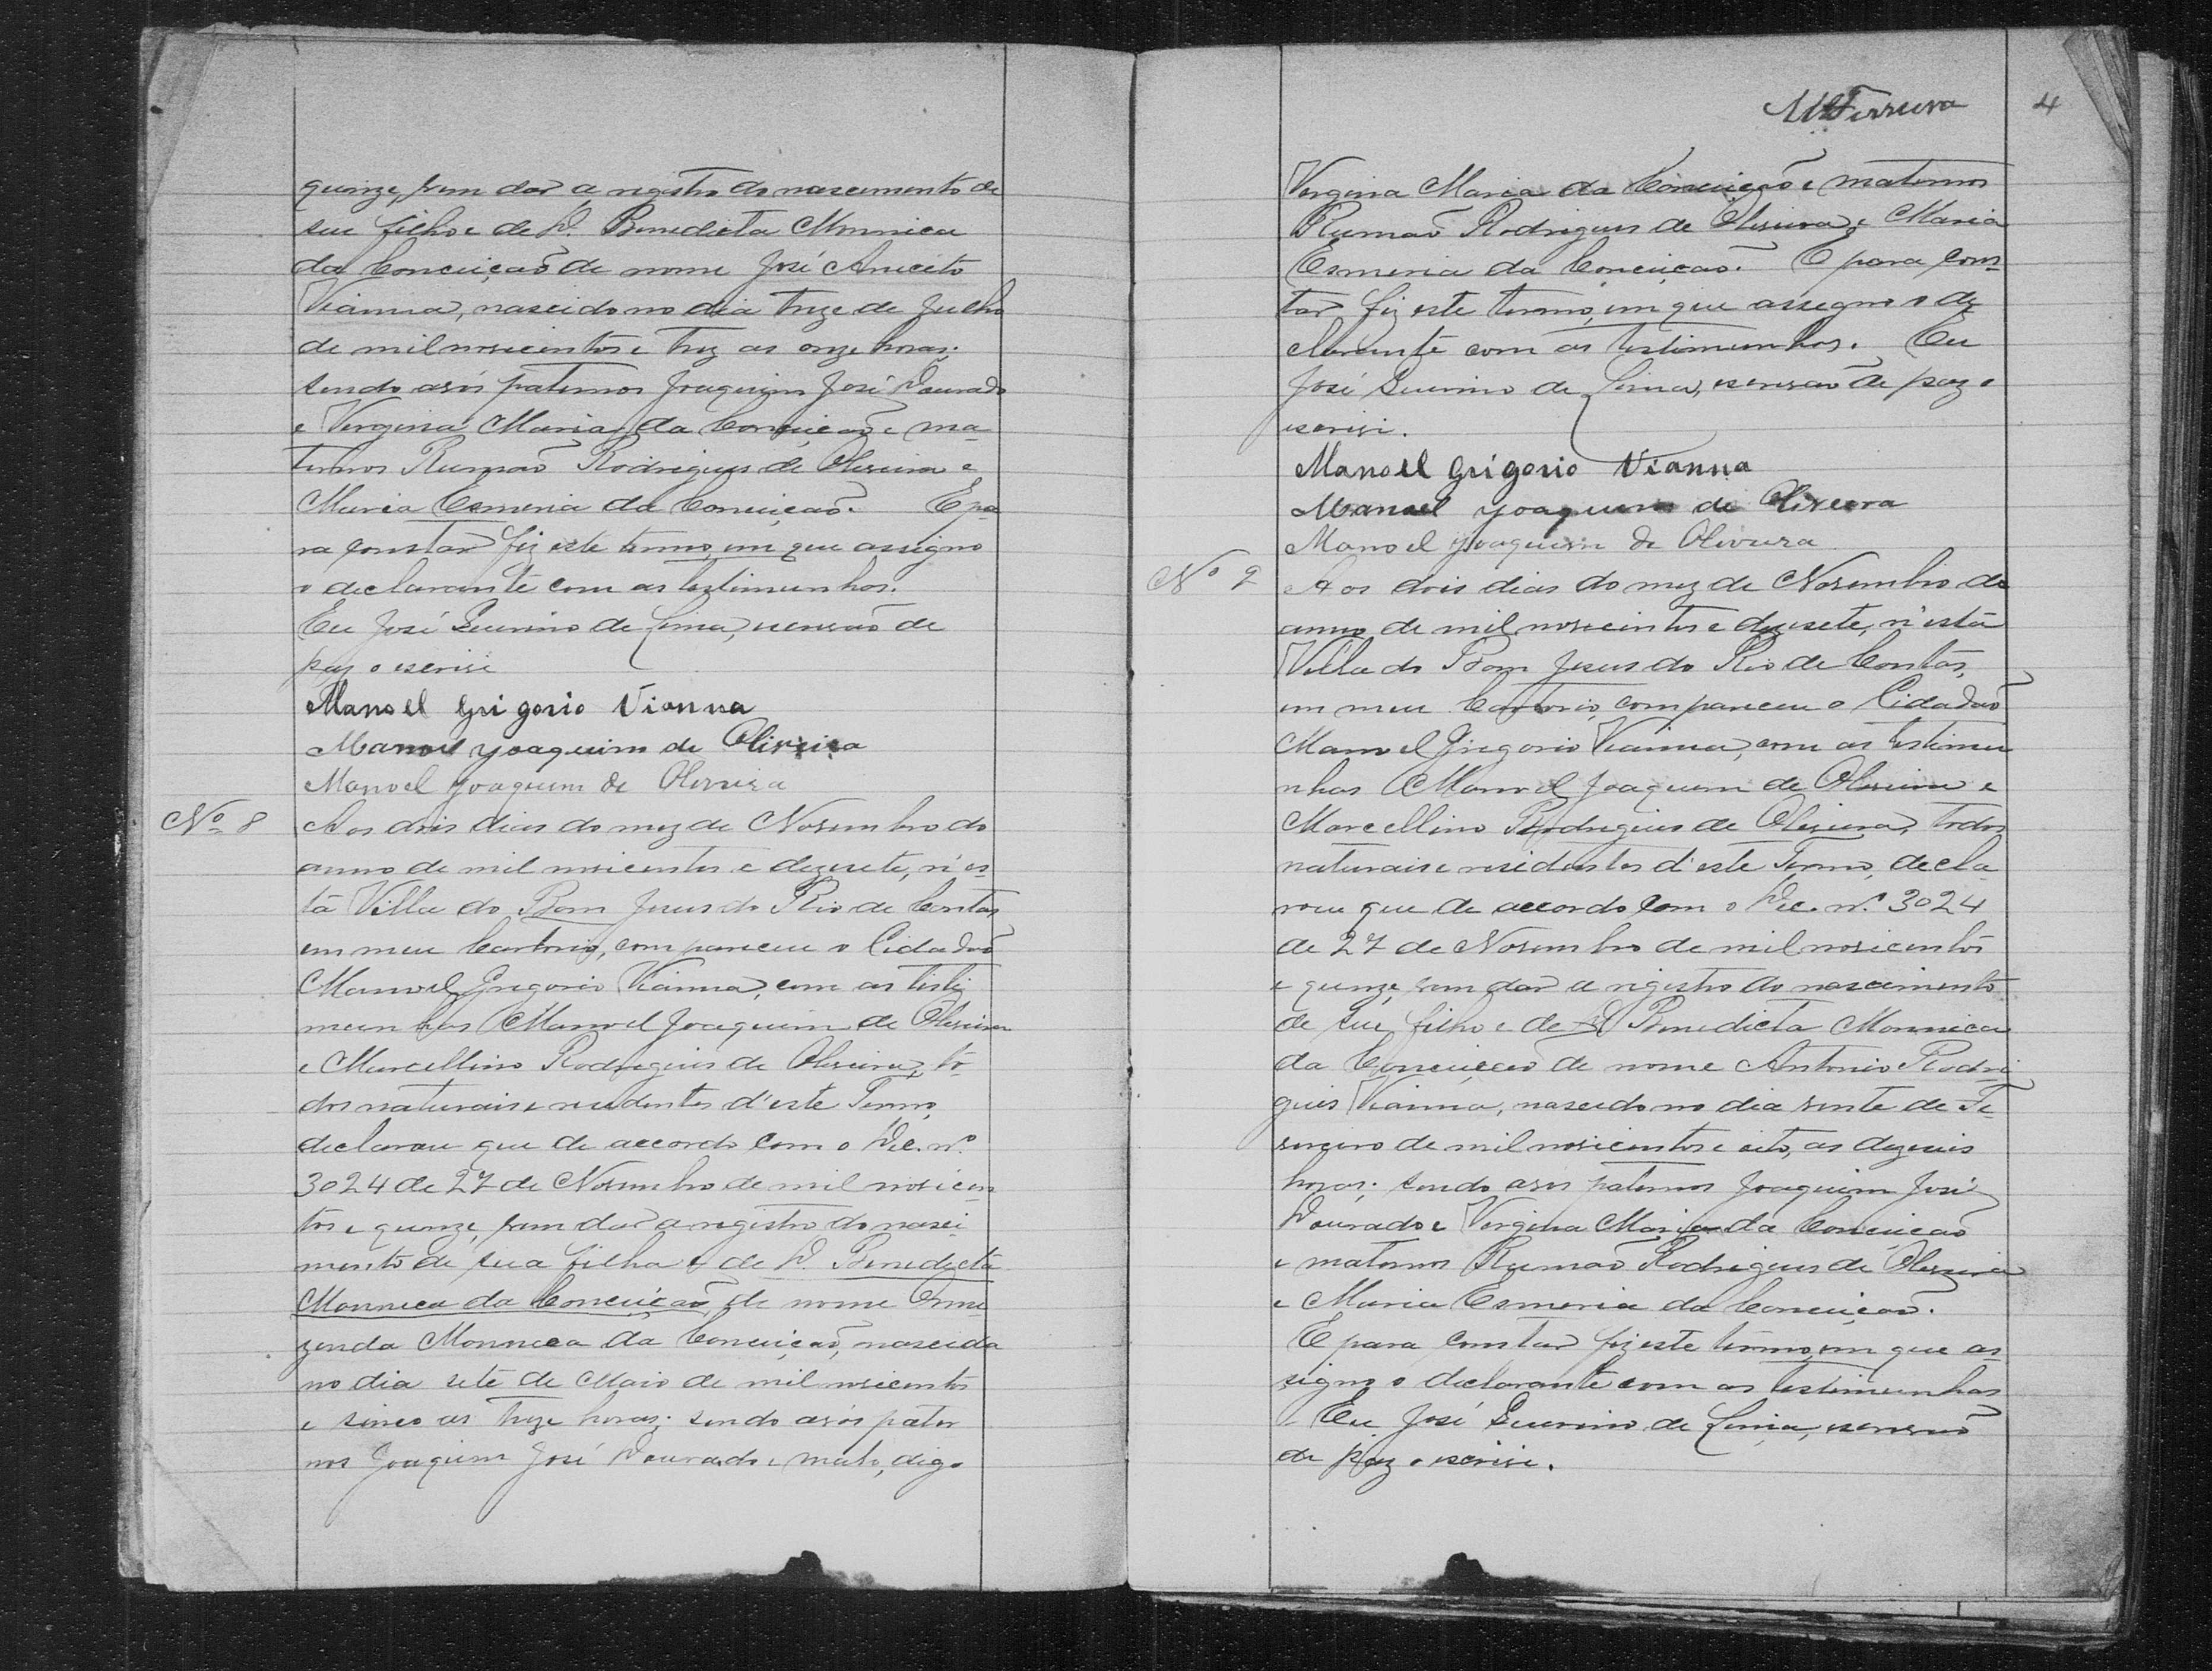 quinze, vem dar a registro do nascimento de
seu filho e de D. Benedicta Monnica
da Conceição de nome José Aniceto
Vianna, nascido no dia treze de Julho
de mil novicentos e trez as onze horas;
sendo avós paternos Joaquim José Dourado
e Vergina Maria da Conceição e ma-
ternos Rumaõ Rodrigues de Oliveira e
Maria Esmeria da Conceição. E pa-
ra constar fiz este termo, em que assigno
o declarante com as testimunhas.
Eu José Querino de Lima, escrivaõ de
paz o escrivi
Manoel Grigorio Vianna
Manoel Joaquim de Oliveira
Manoel Joaquim de Oliveira
Nº 8 Aos dois dias do mez de Novembro do
anno de mil novicentos e dezesete, n'es-
ta Villa do Bom Jesus do Rio de Contas,
em meu Cartorio, compareceu o Cidadaõ
Manoel Gregorio Vianna, com as testi-
munhas Manoel Joaquim de Oliveira
e Marcellino Rodrigues de Oliveira, to-
dos naturais e residentes d'este Termo,
declarou que de accordo com o Dec. nº
3024 de 27 de Novembro de mil novicen-
tos e quinze, vem dar a registro do nasci-
mento de sua filha e de D. Benedicta
Monnica da Conceição, de nome Erme-
zenda Monnica da Conceição, nascida
no dia sete de Maio de mil novicentos
e sinco as treze horas; sendo avós pater-
nos Joaquim José Dourado e mate, digo
4
Vergina Maria da Conceição e maternos
Rumaõ Rodrigues de Oliveira e Maria
Esmeria da Conceição. E para cons-
tar fiz este termo, em que assegno o de-
clarante com as testimunhas. Eu
José Querino de Lima, escrivaõ de paz o
escrivi.
Manoel Grigorio Vianna
Manoel Joaquim de Oliveira
Manoel Joaquim de Oliveira
Nº 9 Aos dois dias do mez de Novembro do
anno de mil novicentos e dezesete, n'esta
Villa do Bom Jesus do Rio de Contas,
em meu Cartorio, compareceu o Cidadaõ
Manoel Gregorio Vianna, com as testimu-
nhas Manoel Joaquim de Oliveira e
Marcellino Rodrigues de Oliveira, todos
naturais e residentes d'este Termo, decla-
rou que de accordo com o Dec. nº 3024
de 27 de Novembro de mil novicentos
e quinze, vem dar a registro do nascimento
de seu filho e de D. Benedicta Monnica
da Conceição de nome Antonio Rodri-
gues Vianna, nascido no dia vinte de Fe-
vereiro de mil novicentos e oito, as dezeseis
horas; sendo avós paternos Joaquim José
Dourado e Vergina Maria da Conceição
e maternos Rumaõ Rodrigues de Oliveira
e Maria Esmeria da Conceição.
E para constar fiz este termo, em que as-
signo o declarante com as testimunhas
Eu José Querino de Lima, escrivaõ
de paz o escrivi.